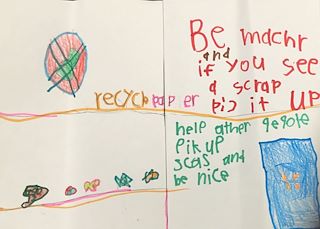 Be machr
and
if you see
a scrap
pic it up
recycle paper
help ather
pik up
scas and
be nice